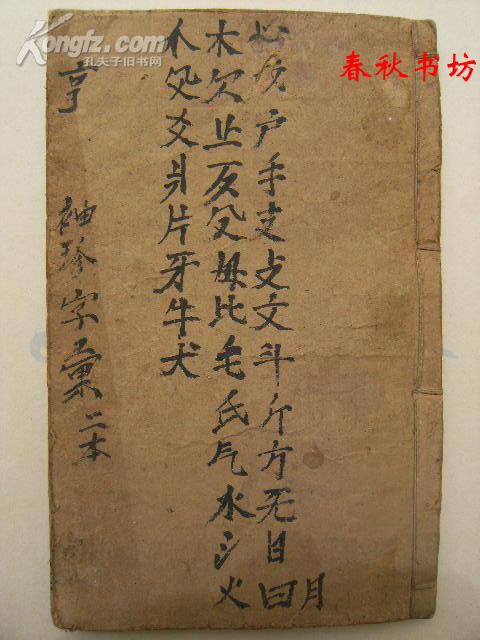 Kongfz.com
孔夫子旧书网
春秋书坊
心戈户手支攴文斗斤方无日曰月
木欠止歹殳毋比毛氏气水氵火
爪父爻爿片牙牛犬
亨
袖珍字彙二本